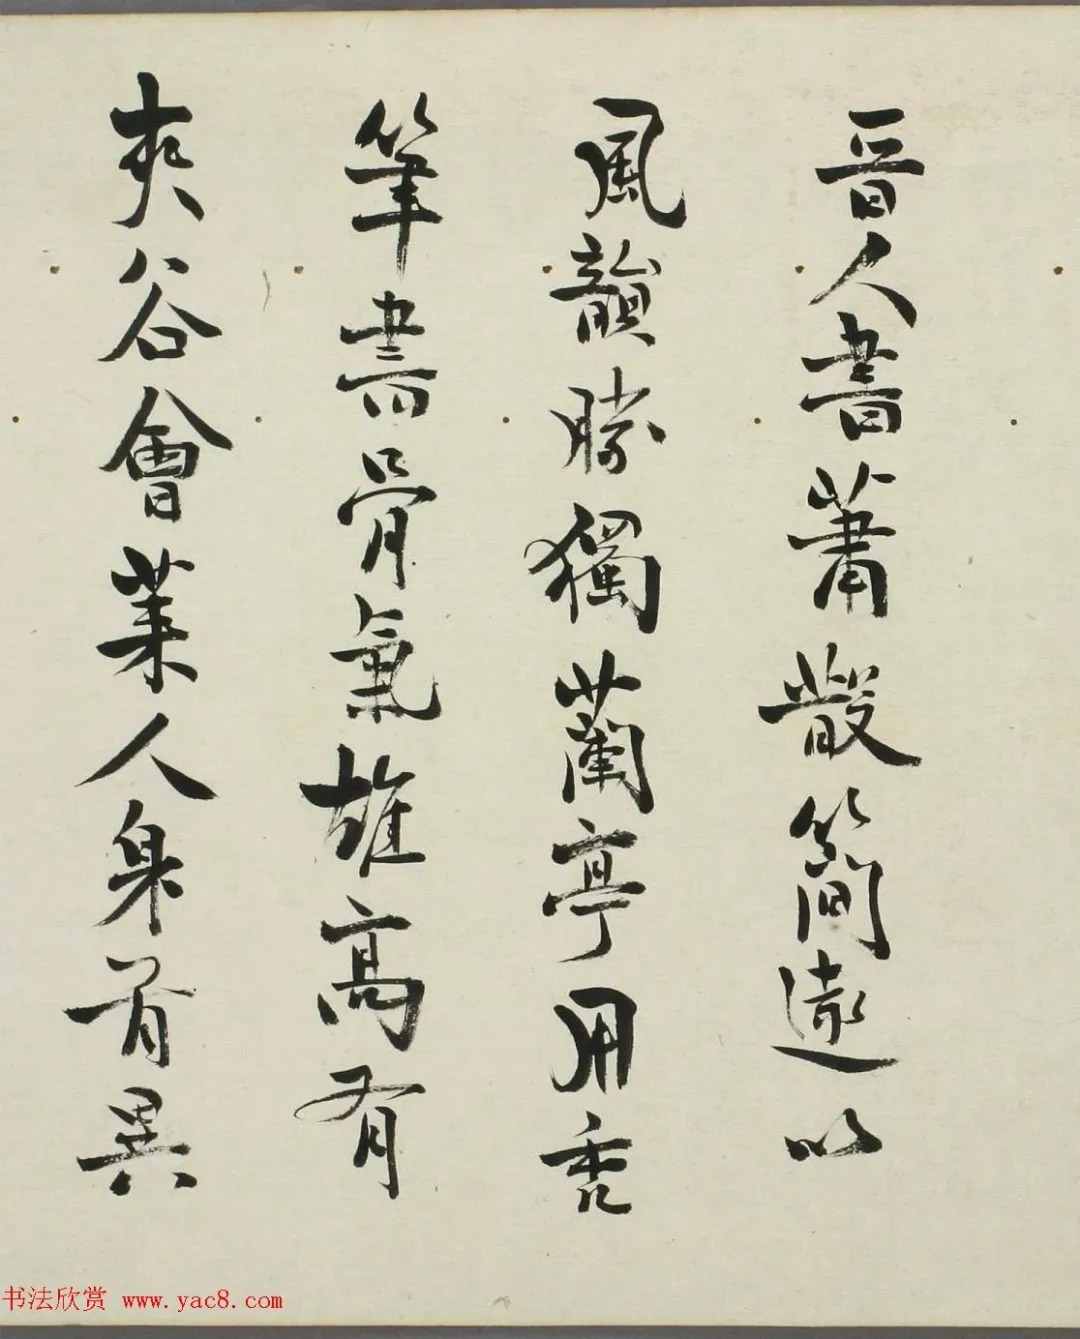 晋人書蕭散簡遠以
風韻勝獨蘭亭用秃
筆書骨氣雄高有
夾谷會萊人身首異
书法欣赏 www.yac8.com